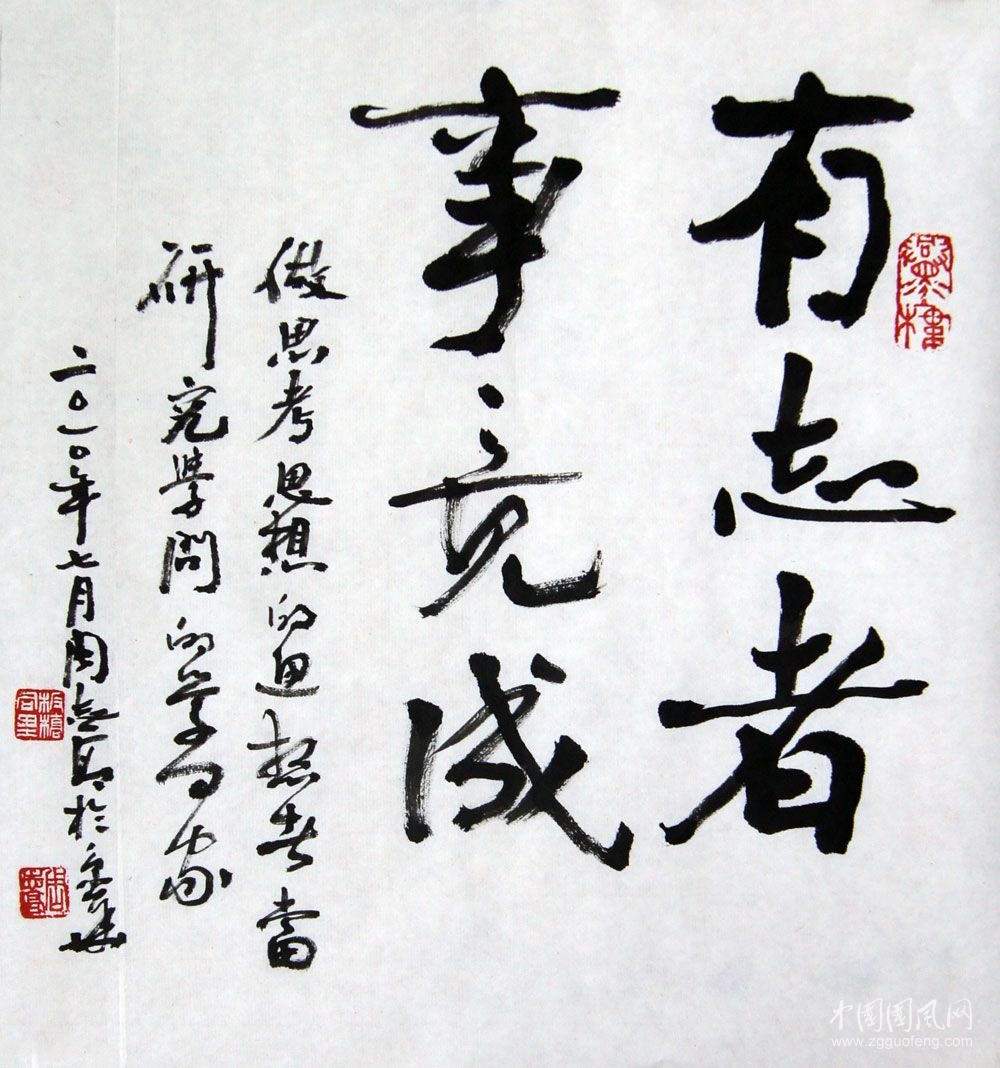 有志者
事竟成
做思考思想的思想者當
研究學問的學問家
二〇一〇年七月周
於
中国国风网
www.zgguofeng.com